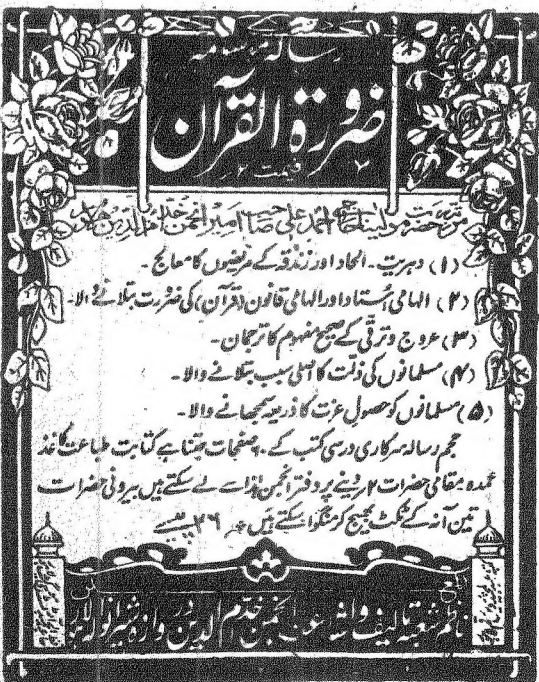 رسالہ مقدسہ
ضرورة القرآن
قیمت ۲
مرتبہ حضرت مولینا حاجی احمد علی صاحب امیر انجمن خدام الدین
(۱) دہریت۔ الحاد اور زندقہ کے مریضوں کا معالج۔
(۲) الہامی اُستاد اور الہامی قانون (قرآن) کی ضرورت بتلانے والا۔
(۳) عروج و ترقی کے صحیح مفہوم کا ترجمان۔
(۴) مسلمانوں کی ذلت کا اصلی سبب بتلانے والا۔
(۵) مسلمانوں کو حصولِ عزت کا ذریعہ سمجھانے والا۔
حجم رسالہ سرکاری درسی کتب کے ۶۰ صفحات جتنا ہے کتابت طباعت کاغذ
عمدہ مقامی حضرات ۲ر دینے پر دفتر انجمن ہذا سے لے سکتے ہیں بیرونی حضرات
تین آنہ کے ٹکٹ بھیج کر منگوا سکتے ہیں ۳۶ پیسے
ناظم شعبۂ تالیف و اشاعت انجمن خدام الدین دروازہ شیرانوالہ لاہور